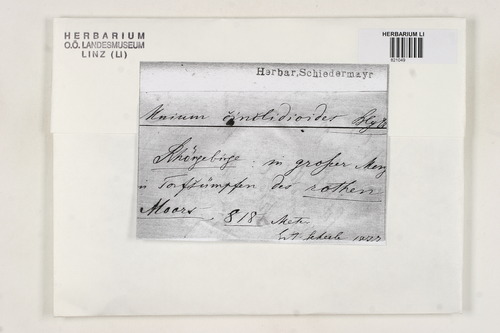 HERBARIUM
O.Ö. LANDESMUSEUM
LINZ (LI)
HERBARIUM LI
Herbar. Schiedermayr
Mnium cinclidioides
Rhöngebirge: in großer Menge
in Torfsümpfen des rothen
Moors, 818 Meter